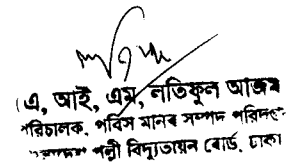 (এ, আই, এম, লতিফুল আজম
পরিচালক, পবিস মানব সম্পদ পরিদপ্তর
পল্লী বিদ্যুতায়ন বোর্ড, ঢাকা